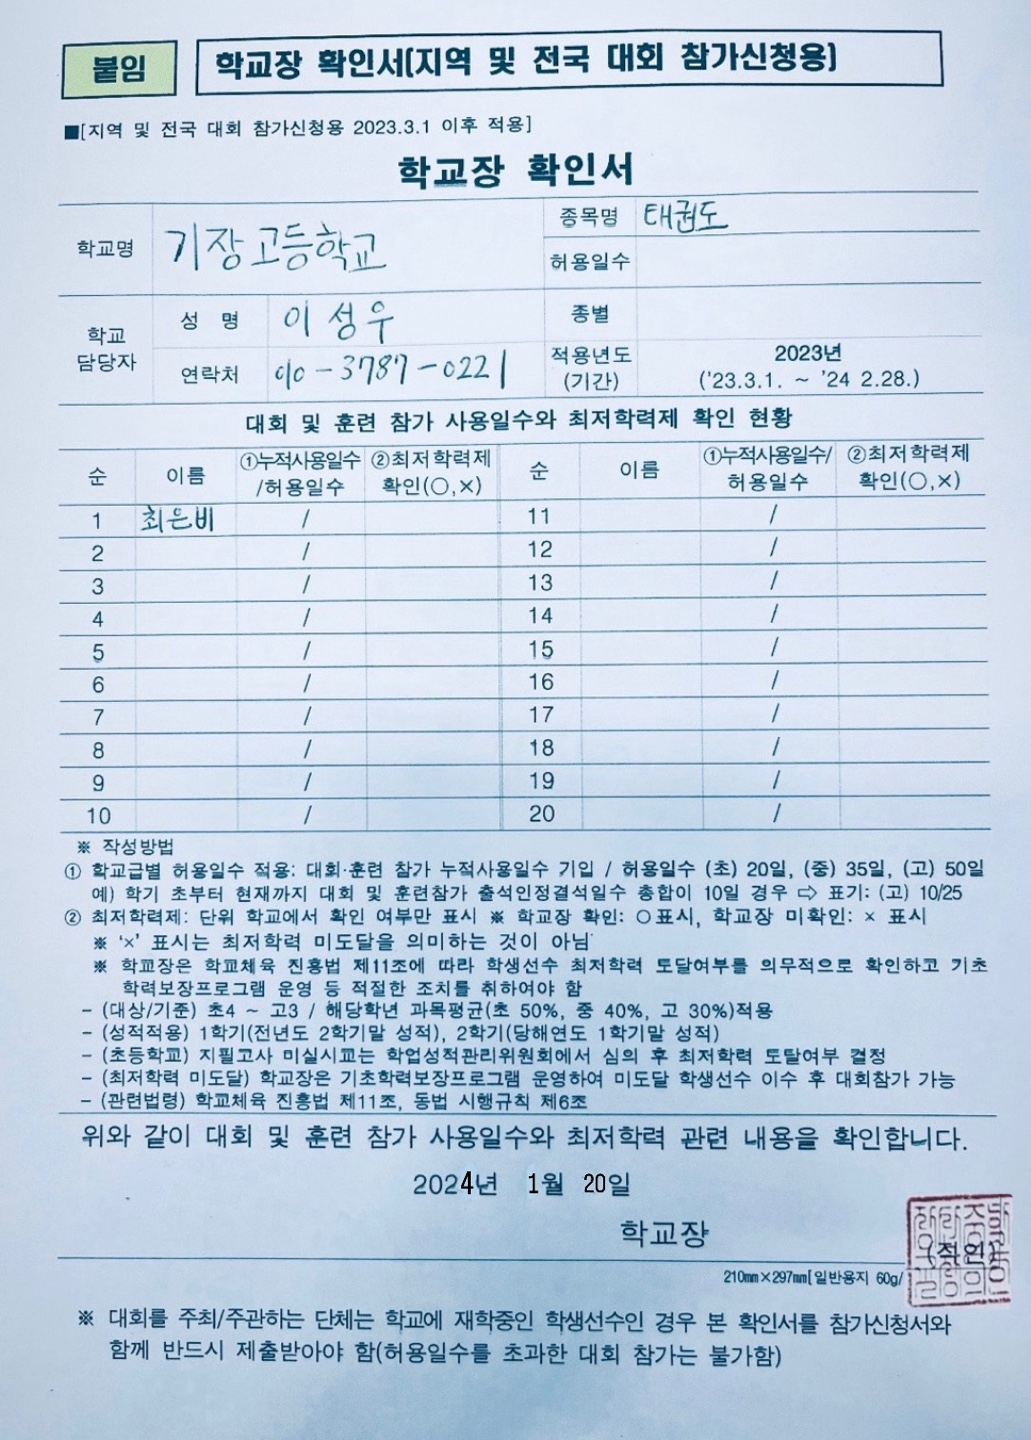 붙임
학교장 확인서(지역 및 전국 대회 참가신청용)
■[지역 및 전국 대회 참가신청용 2023.3.1 이후 적용]
학교장 확인서
학교명 기장고등학교 종목명 태권도
허용일수
학교 담당자 성 명 이성우 종별
연락처 010-3787-0221 적용년도 (기간) 2023년
('23.3.1. ~ '24 2.28.)
대회 및 훈련 참가 사용일수와 최저학력제 확인 현황
순 이름 ①누적사용일수 /허용일수 ②최저학력제 확인(○,×) 순 이름 ①누적사용일수/ 허용일수 ②최저학력제 확인(○,×)
1 최은비 / 11 /
2 / 12 /
3 / 13 /
4 / 14 /
5 / 15 /
6 / 16 /
7 / 17 /
8 / 18 /
9 / 19 /
10 / 20 /
※ 작성방법
① 학교급별 허용일수 적용: 대회·훈련 참가 누적사용일수 기입 / 허용일수 (초) 20일, (중) 35일, (고) 50일
예) 학기 초부터 현재까지 대회 및 훈련참가 출석인정결석일수 총합이 10일 경우 ⇨ 표기: (고) 10/25
② 최저학력제: 단위 학교에서 확인 여부만 표시 ※ 학교장 확인: ○표시, 학교장 미확인: × 표시
※ '×' 표시는 최저학력 미도달을 의미하는 것이 아님
※ 학교장은 학교체육 진흥법 제11조에 따라 학생선수 최저학력 도달여부를 의무적으로 확인하고 기초
학력보장프로그램 운영 등 적절한 조치를 취하여야 함
- (대상/기준) 초4 ~ 고3 / 해당학년 과목평균(초 50%, 중 40%, 고 30%)적용
- (성적적용) 1학기(전년도 2학기말 성적), 2학기(당해연도 1학기말 성적)
- (초등학교) 지필고사 미실시교는 학업성적관리위원회에서 심의 후 최저학력 도달여부 결정
- (최저학력 미도달) 학교장은 기초학력보장프로그램 운영하여 미도달 학생선수 이수 후 대회참가 가능
- (관련법령) 학교체육 진흥법 제11조, 동법 시행규칙 제6조
위와 같이 대회 및 훈련 참가 사용일수와 최저학력 관련 내용을 확인합니다.
2024년 1월 20일
학교장 (직인)
210㎜×297㎜[일반용지 60g/
※ 대회를 주최/주관하는 단체는 학교에 재학중인 학생선수인 경우 본 확인서를 참가신청서와
함께 반드시 제출받아야 함(허용일수를 초과한 대회 참가는 불가함)